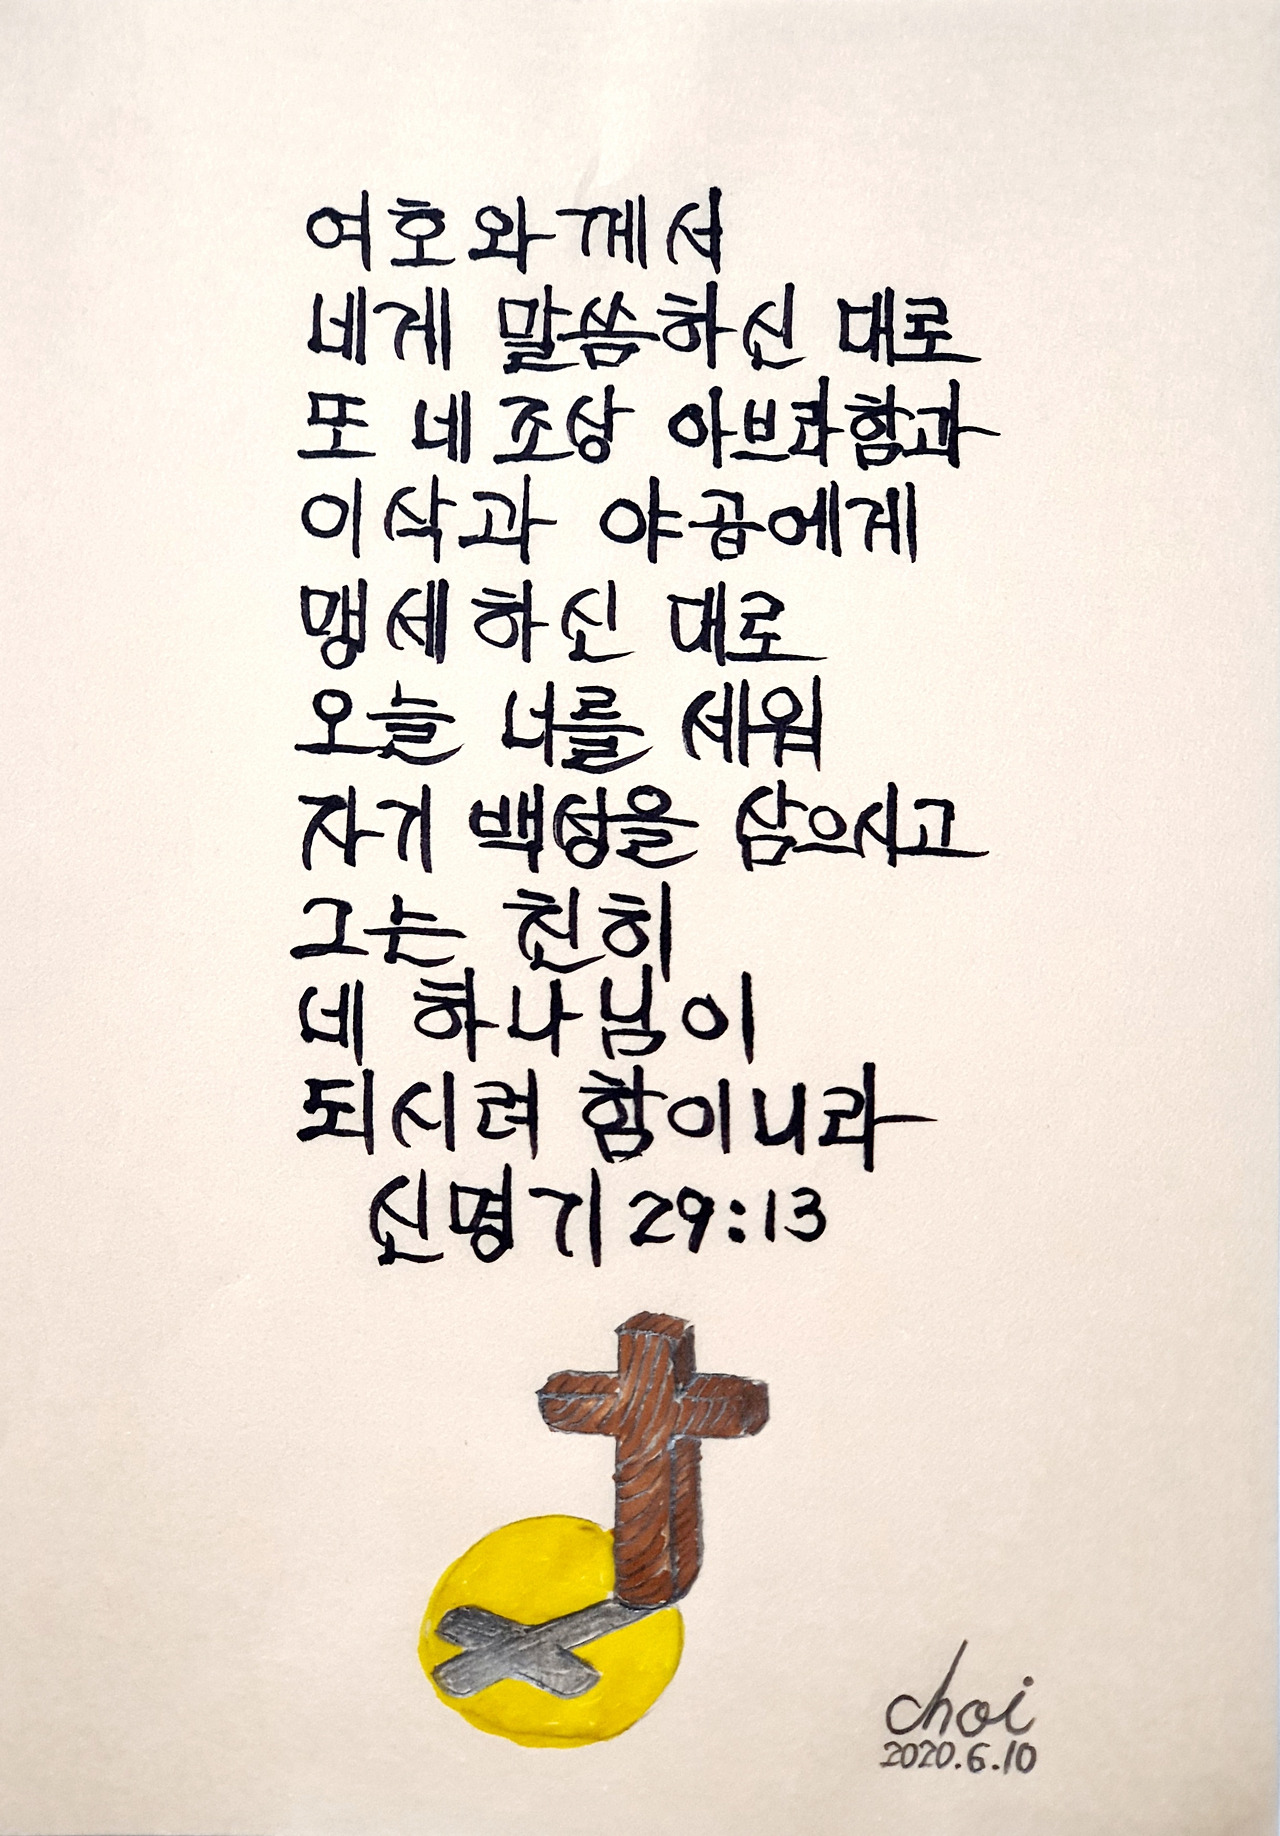 여호와께서
네게 말씀하신 대로
또 네 조상 아브라함과
이삭과 야곱에게
맹세하신 대로
오늘 너를 세워
자기 백성을 삼으시고
그는 친히
네 하나님이
되시려 함이니라
신명기 29:13
choi
2020.6.10